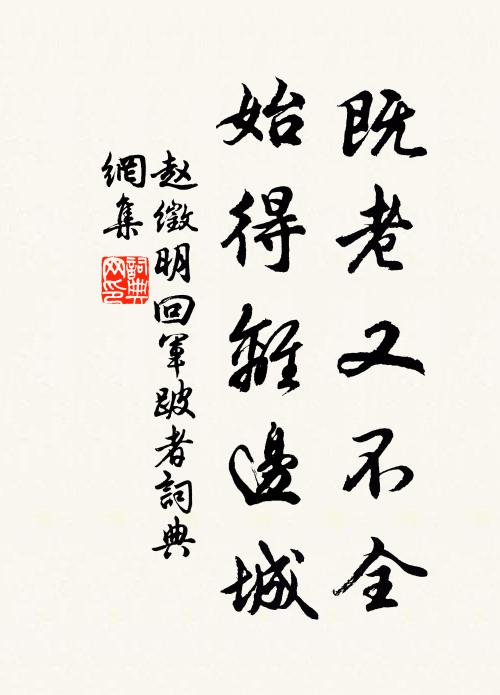 既老又不全
始得離邊城
赵徵明回軍跛者詞典
網集
詞典
网印